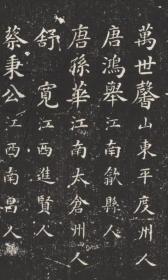 萬世馨山東平度州人
唐鴻舉江南歙縣人
唐孫華江南太倉州人
舒寬江西進賢人
蔡秉公江西南昌人